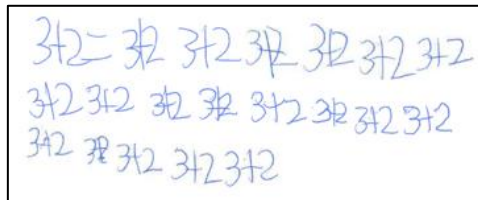 3+2= 3+2 3+2 3+2 3+2 3+2 3+2
3+2 3+2 3+2 3+2 3+2 3+2 3+2 3+2
3+2 3+2 3+2 3+2 3+2